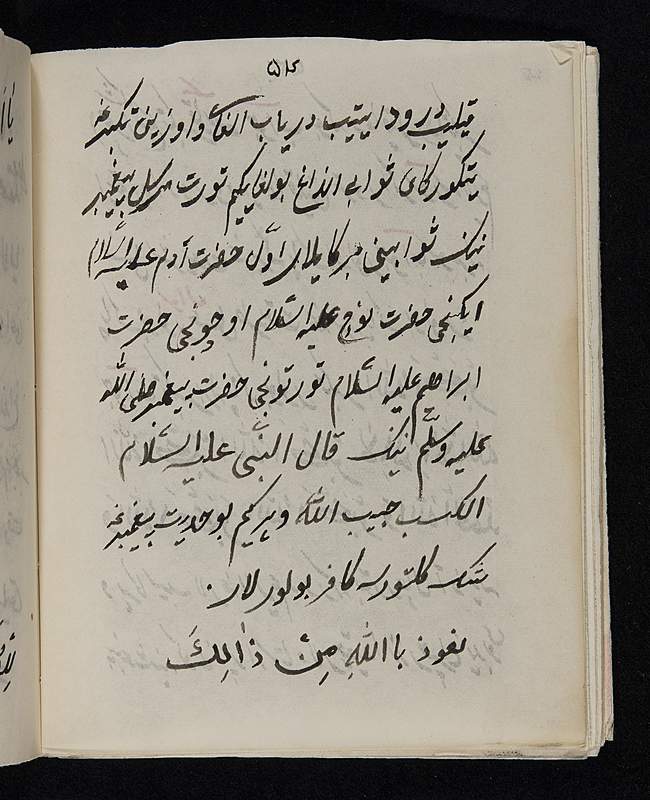 ۵۴
قیلیب درود ایتیب دریاب الغای و اوزینی تکبیرغه
یتکورکای ثوابی انداغ بولغای کیم تورت مرسل پیغمبر
نینک ثوابینی بیرکایلار اول حضرت آدم علیه السّلام
ایکنجی حضرت نوح علیه السّلام اوچونجی حضرت
ابراهیم علیه السّلام تورتونجی حضرت پیغمبر صلی اللّه
علیه وسلّم نینک قال النّبی علیه السّلام
الکسب حبیب اللّه و هر کیم بو حدیث پیغمبرغه
شک کلتورسه کافر بولورلار.
نعوذ بااللّهِ مِنْ ذٰالِکَ